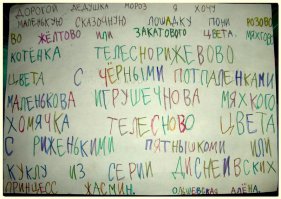 ДОРОГОЙ ДЕДУШКА МОРОЗ Я ХОЧУ
МАЛЕНЬКУЮ СКАЗОЧНУЮ ЛОШАДКУ ПОНИ РОЗОВО
ВО ЖЁЛТОВО ИЛИ ЗАКАТОВОГО ЦВЕТА. МЯХГОВО
КОТЕНКА ТЕЛЕСНОРИЖЕВОВО
ЦВЕТА С ЧЁРНЫМИ ПОТПАЛЕНКАМИ
МАЛЕНЬКОВА ИГРУШЕЧНОВА МЯХКОГО
ХОМЯЧКА ТЕЛЕСНОВО ЦВЕТА
С РИЖЕНЬКИМИ ПЯТНЫШКОМИ ИЛИ
КУКЛУ ИЗ СЕРИИ ДИСНЕИВСКИХ
ПРИНЦЕСС ЖАСМИН. ОЛЬШЕВСКАЯ АЛЁНА.